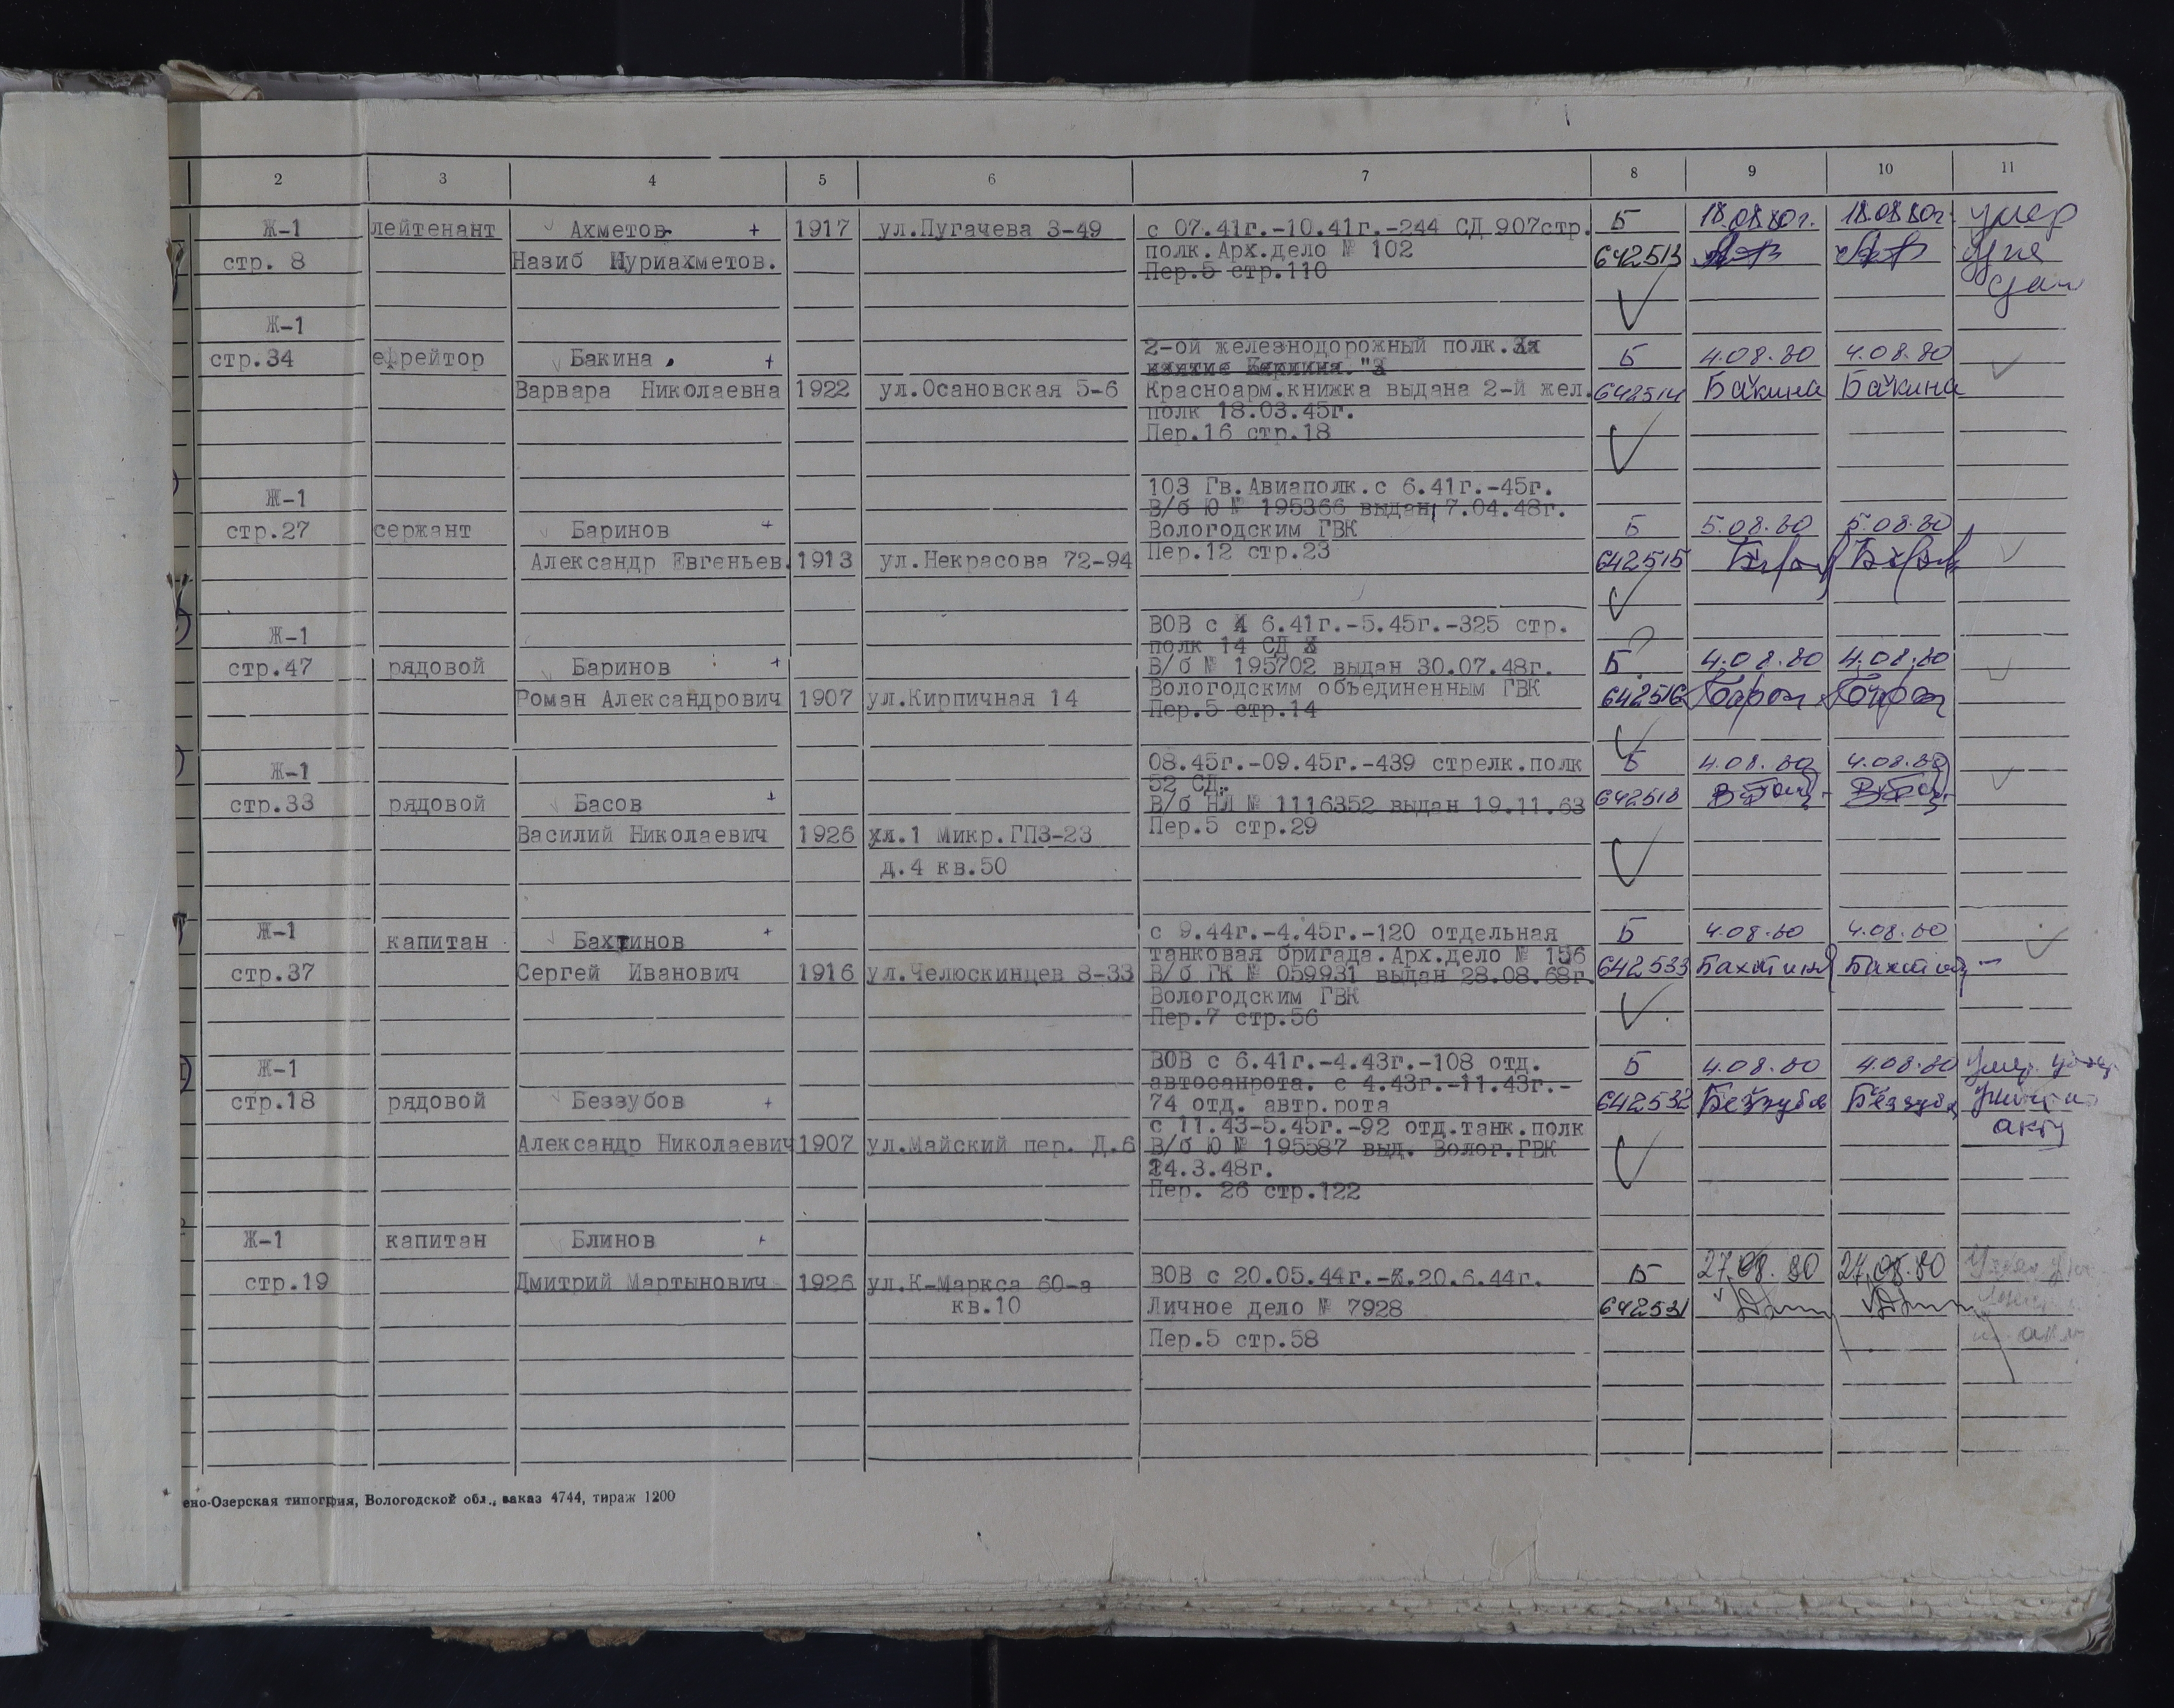 2 3 4 5 6 7 8 9 10 11
Ж-1 лейтенант Ахметов + 1917 ул.Пугачева 3-49 с 07.41г.-10.41г.-244 СД 907стр. Б 18.08.80г. 18.08.80г. умер
стр. 8 Назиб Нуриахметов. полк.Арх.дело № 102 642513
Пер.5 стр.110
Ж-1
стр.34 ефрейтор Бакина + 2-ой железнодорожный полк. Б 4.08.80 4.08.80
Варвара Николаевна 1922 ул.Осановская 5-6 Красноарм.книжка выдана 2-й жел. 642514 Бакина Бакина
полк 18.03.45г.
Пер.16 стр.18
Ж-1 103 Гв.Авиаполк.с 6.41г.-45г.
В/б Ю № 195366 выдан 7.04.48г.
стр.27 сержант Баринов + Вологодским ГВК Б 5.08.80 5.08.80
Александр Евгеньев. 1913 ул.Некрасова 72-94 Пер.12 стр.23 642515
Ж-1 ВОВ с 6.41г.-5.45г.-325 стр.
полк 14 СД
стр.47 рядовой Баринов + В/б № 195702 выдан 30.07.48г. Б 4.08.80 4.08.80
Роман Александрович 1907 ул.Кирпичная 14 Вологодским объединенным ГВК 642516
Пер.5 стр.14
Ж-1 08.45г.-09.45г.-439 стрелк.полк Б 4.08.80 4.08.80
52 СД.
стр.33 рядовой Басов + В/б НЛ № 1116352 выдан 19.11.63 642518
Василий Николаевич 1926 ул.1 Микр.ГПЗ-23 Пер.5 стр.29
д.4 кв.50
Ж-1 капитан Бахтинов + с 9.44г.-4.45г.-120 отдельная Б 4.08.80 4.08.80
танковая бригада.Арх.дело № 156
стр.37 Сергей Иванович 1916 ул.Челюскинцев 8-33 В/б ГК № 059931 выдан 28.08.68г. 642533
Вологодским ГВК
Пер.7 стр.56
Ж-1 ВОВ с 6.41г.-4.43г.-108 отд. Б 4.08.80 4.08.80
автосанрота. с 4.43г.-11.43г.-
стр.18 рядовой Беззубов + 74 отд. автр.рота 642532
с 11.43-5.45г.-92 отд.танк.полк акту
Александр Николаевич 1907 ул.Майский пер. Д.6 В/б Ю № 195587 выд. Волог.ГВК
24.3.48г.
Пер. 26 стр.122
Ж-1 капитан Блинов +
стр.19 Дмитрий Мартынович 1926 ул.К-Маркса 60-а ВОВ с 20.05.44г.-20.6.44г. Б 27.08.80 27.08.80
кв.10 Личное дело № 7928 642531
Пер.5 стр.58
ено-Озерская типография, Вологодской обл., заказ 4744, тираж 1200